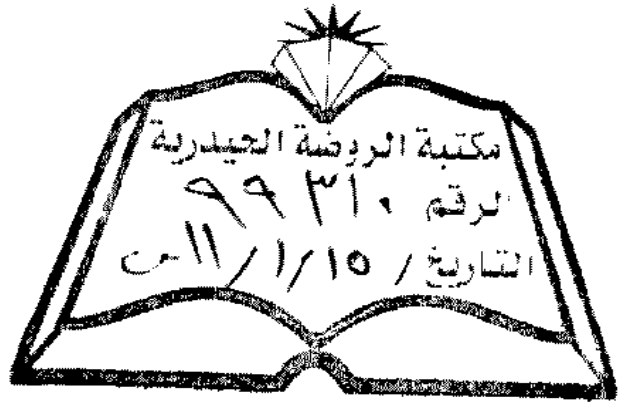 مكتبة الروضة الحيدرية
الرقم ٩٩٣١٠
التاريخ / ١٥ / ١ / ١١